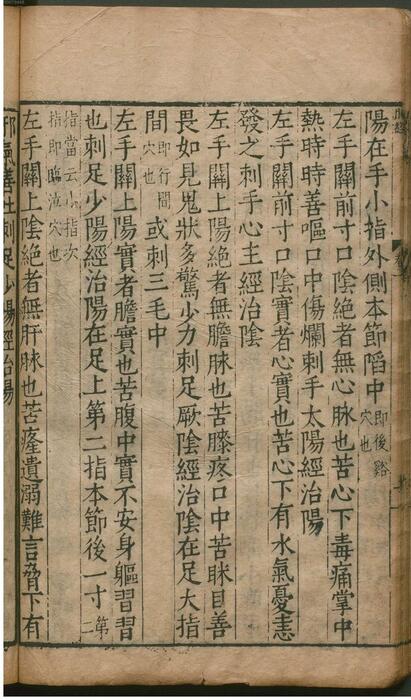 陽在手小指外側本節陷中即後谿穴也
左手關前寸口陰絶者無心脉也苦心下毒痛掌中
熱時時善嘔口中傷爛刺手太陽經治陽
左手關前寸口陰實者心實也苦心下有水氣憂恚
發之刺手心主經治陰
左手關上陽絶者無膽脉也苦膝疼口中苦眯目善
畏如見鬼狀多驚少力刺足厥陰經治陰在足大指
間即行間穴也或刺三毛中
左手關上陽實者膽實也苦腹中實不安身軀習習
也刺足少陽經治陽在足上第二指本節後一寸第二
指當云小指次指即臨泣穴也
左手關上陰絶者無肝脉也苦癃遺溺難言脅下有
邪氣善吐刺足少陽經治陽